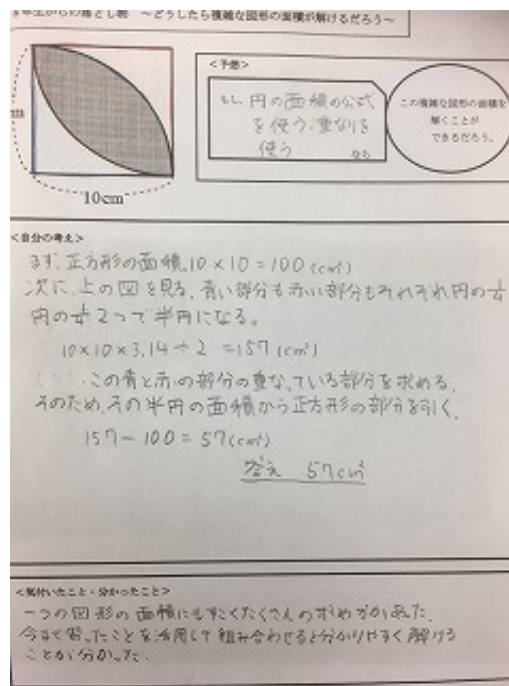 年生からの落とし物 ～どうしたら複雑な図形の面積が解けるだろう～
10cm
＜予想＞
もし、円の面積の公式
を使う、重なりを
使う なら
この複雑な図形の面積を
解くことが
できるだろう。
＜自分の考え＞
まず、正方形の面積、10×10＝100(cm²)
次に、上の図を見る、青い部分も赤い部分もそれぞれ円の1/4
円の1/4 2つで半円になる。
10×10×3.14÷2 ＝157(cm²)
この青と赤の部分の重なっている部分を求める。
そのため、その半円の面積から正方形の部分を引く。
157－100＝57(cm²)
答え 57cm²
＜気付いたこと・分かったこと＞
一つの図形の面積にもすごくたくさんの求め方があった。
今まで習ったことを活用して組み合わせると分かりやすく解ける
ことが分かった。